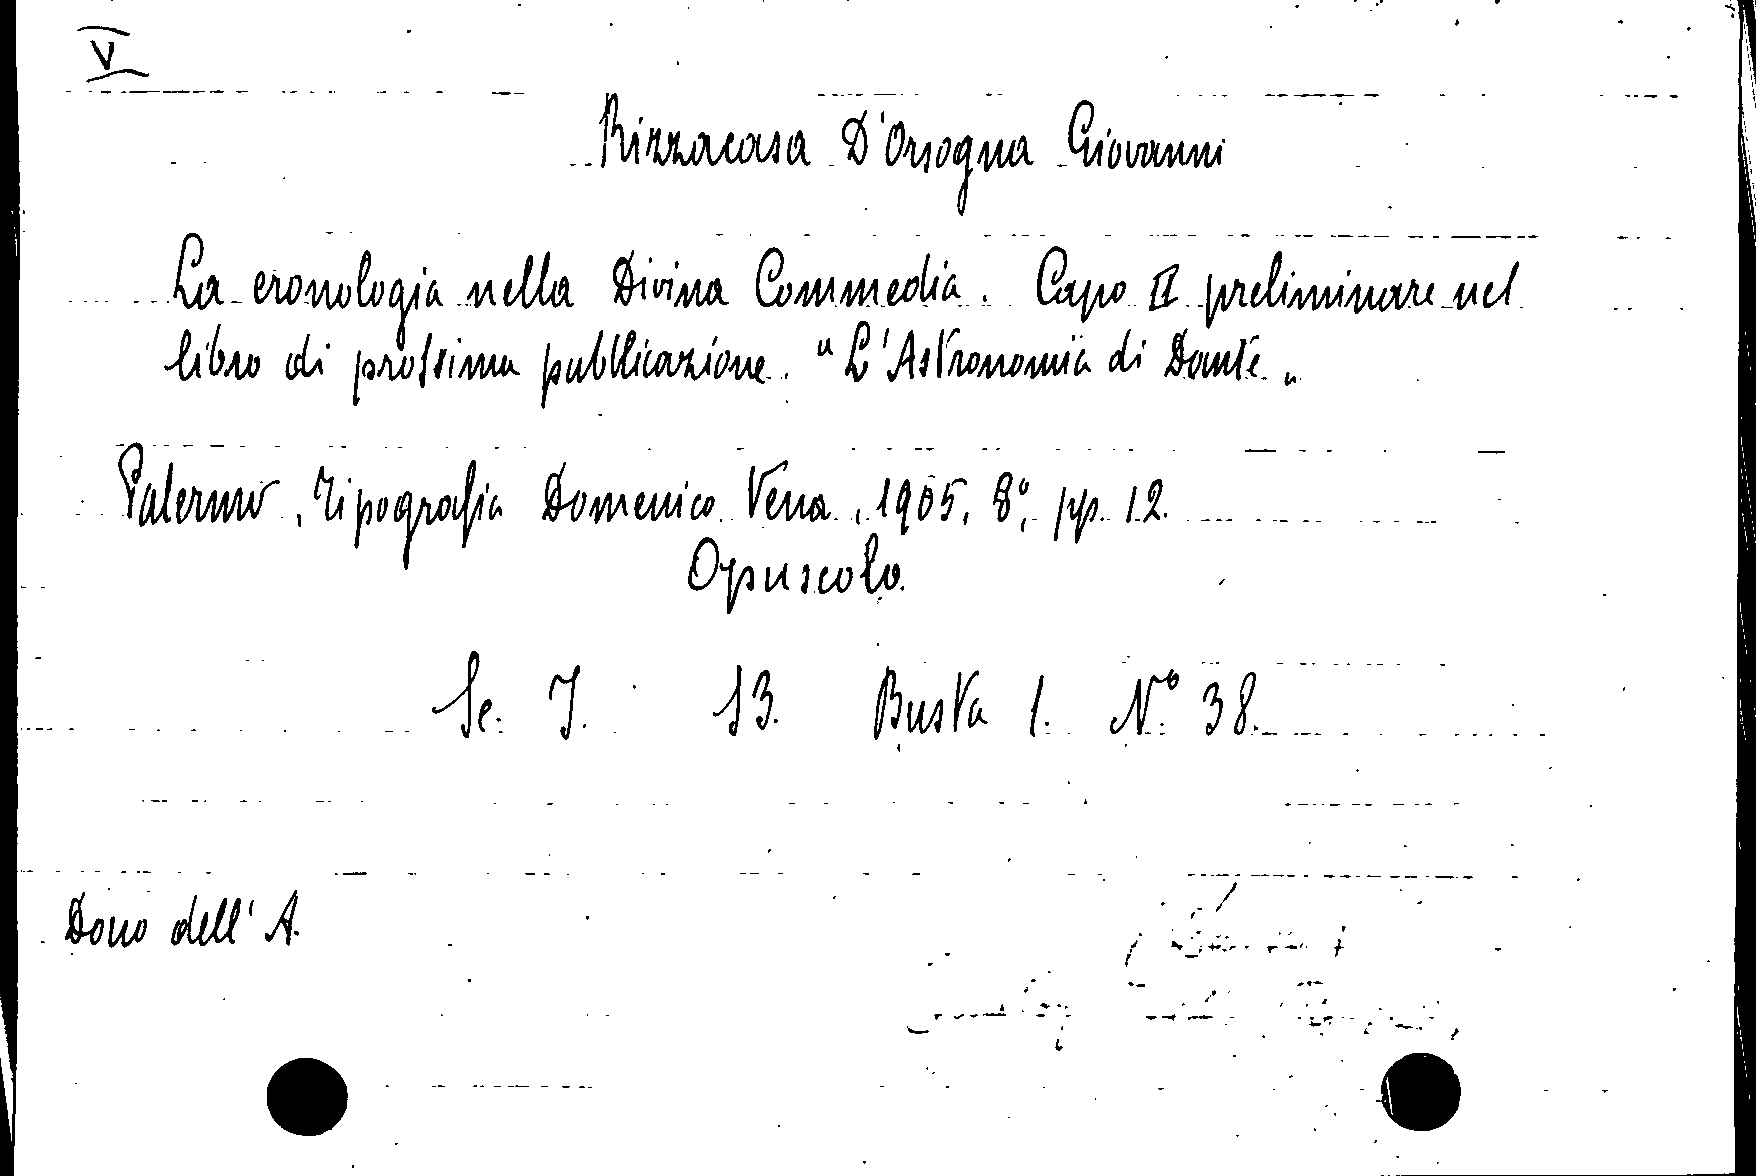 V
Rizzacasa D'Orsogna Giovanni
La cronologia nella Divina Commedia. Capo II preliminare nel
libro di prossima pubblicazione. "L'Astronomia di Dante„
Palermo, Tipografia Domenico Vena, 1905, 8°, pp. 12.
Opuscolo.
Se. I. 13. Busta 1. N° 38.
Dono dell'A.